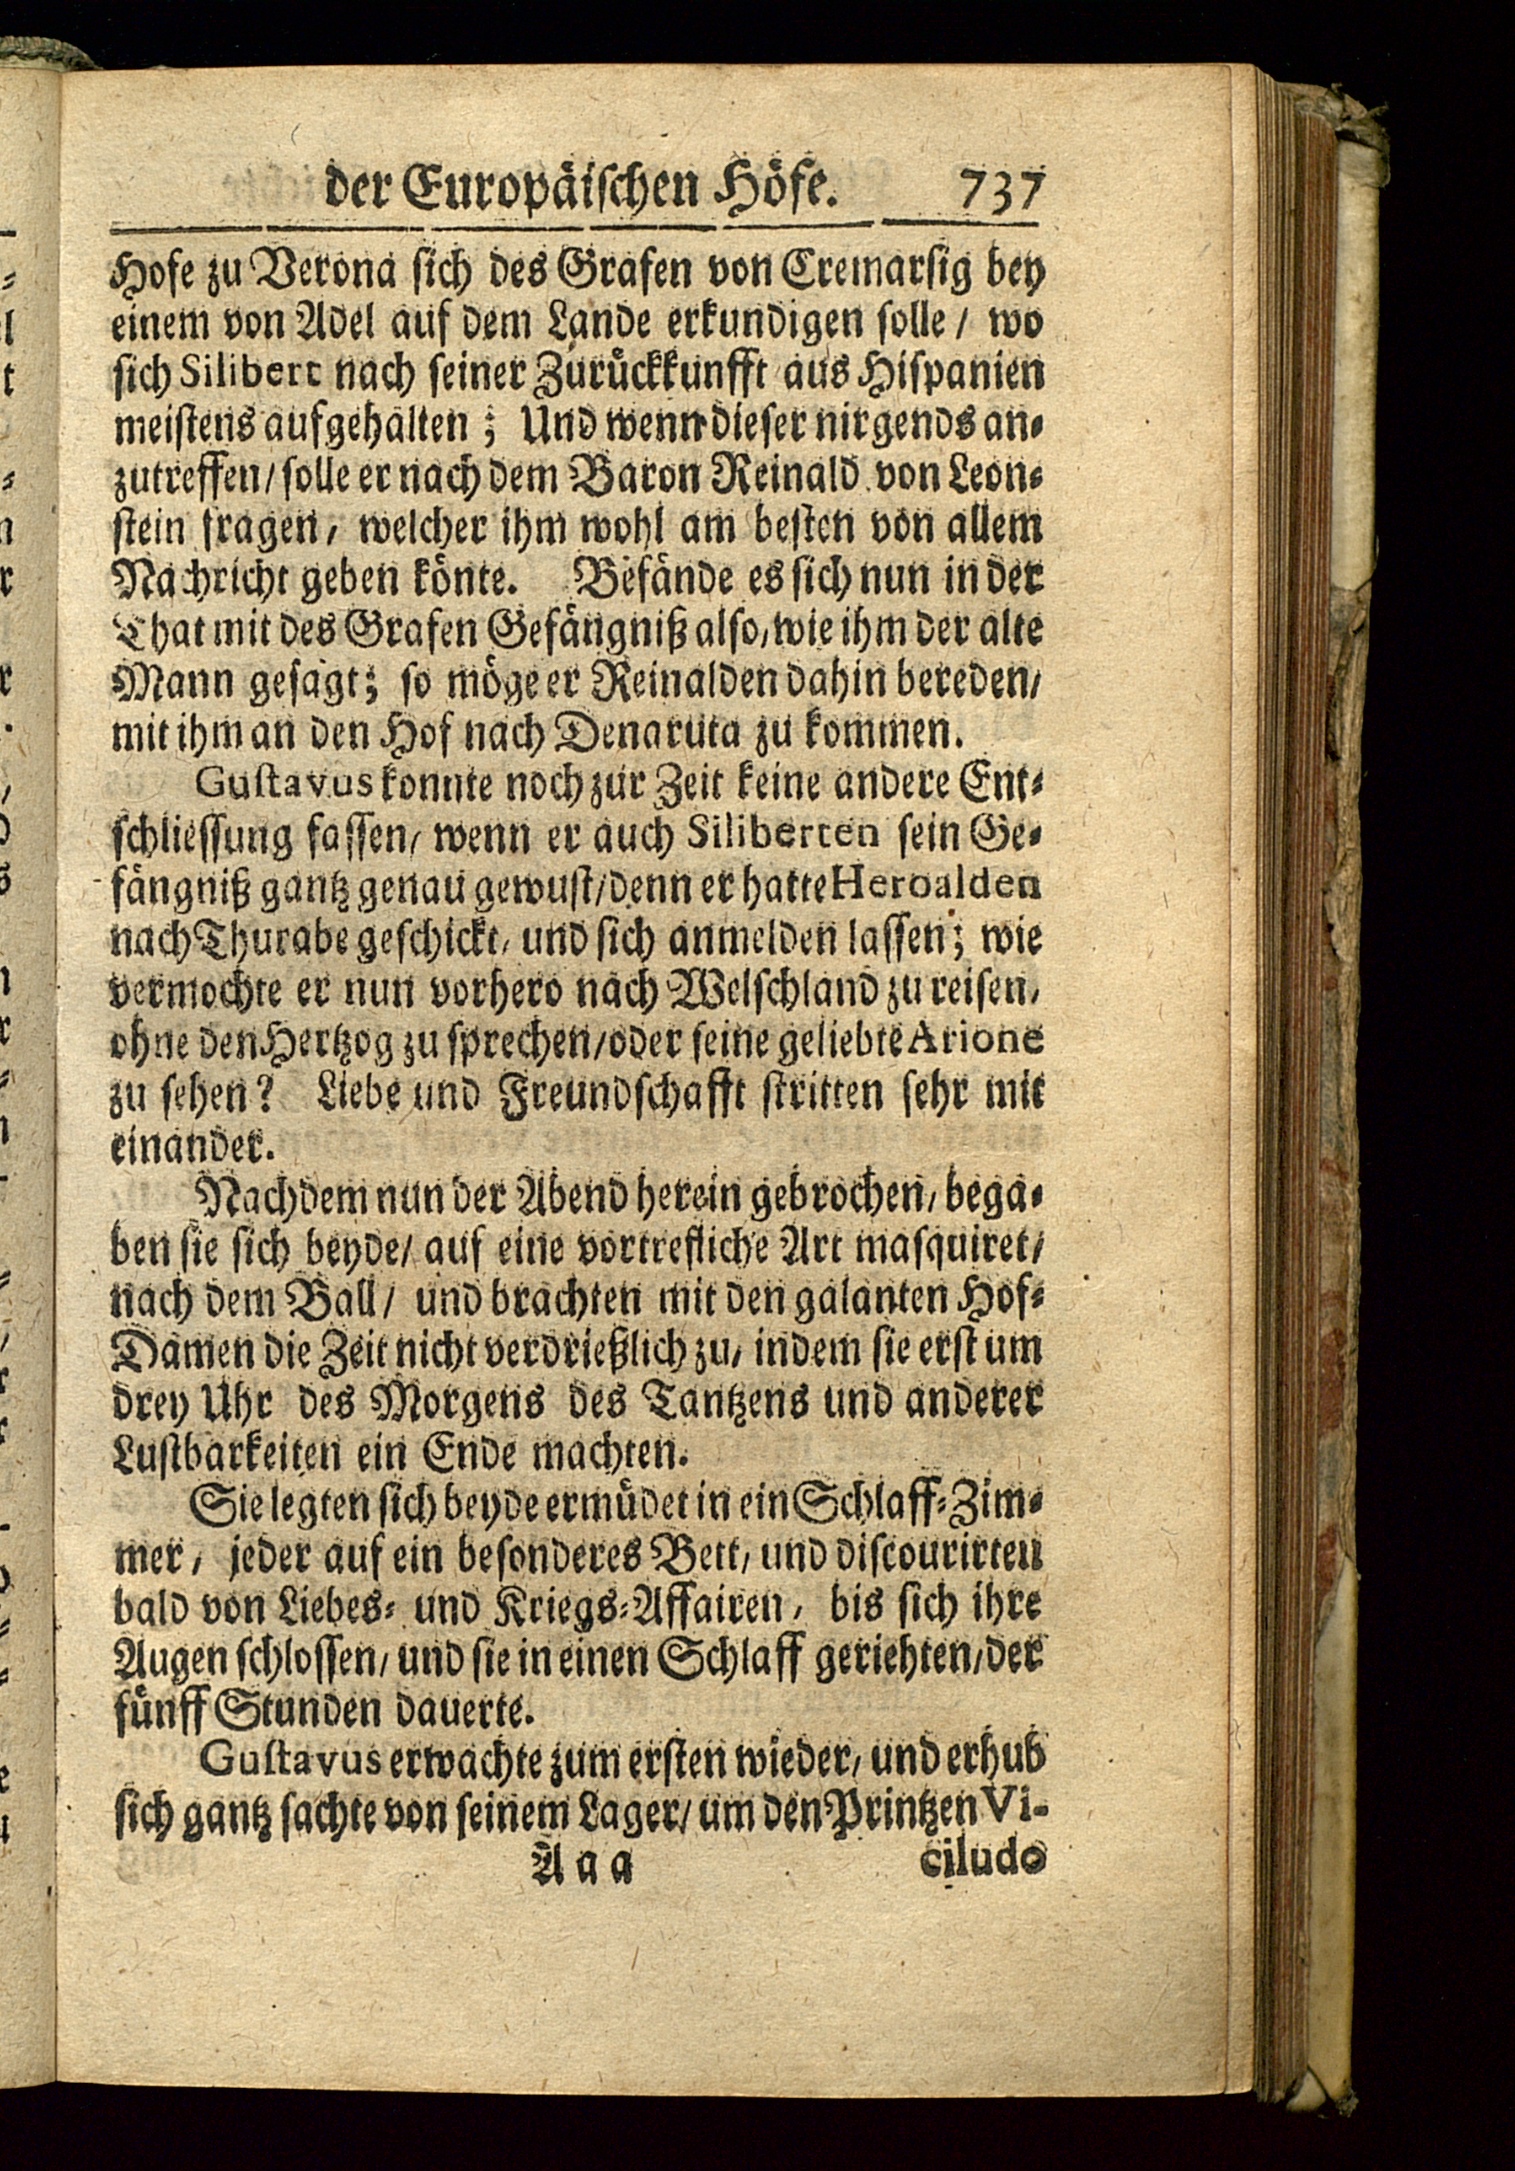 der Europäischen Höfe. 737
Hofe zu Verona sich des Grafen von Cremarsig bey
einem von Adel auf dem Lande erkundigen solle / wo
sich Silibert nach seiner Zurückkunfft aus Hispanien
meistens aufgehalten; Und wenn dieser nirgends an-
zutreffen / solle er nach dem Baron Reinald von Leon-
stein fragen / welcher ihm wohl am besten von allem
Nachricht geben könte. Befände es sich nun in der
That mit des Grafen Gefängniß also / wie ihm der alte
Mann gesagt; so möge er Reinalden dahin bereden /
mit ihm an den Hof nach Denaruta zu kommen.
Gustavus konnte noch zur Zeit keine andere Ent-
schliessung fassen / wenn er auch Siliberten sein Ge-
fängniß gantz genau gewust / denn er hatte Heroalden
nach Thurabe geschickt / und sich anmelden lassen; wie
vermochte er nun vorhero nach Welschland zu reisen /
ohne den Hertzog zu sprechen / oder seine geliebte Arione
zu sehen? Liebe und Freundschafft stritten sehr mit
einander.
Nachdem nun der Abend herein gebrochen / bega-
ben sie sich beyde / auf eine vortrefliche Art masquiret /
nach dem Ball / und brachten mit den galanten Hof-
Damen die Zeit nicht verdrießlich zu / indem sie erst um
drey Uhr des Morgens des Tantzens und anderer
Lustbarkeiten ein Ende machten.
Sie legten sich beyde ermüdet in ein Schlaff-Zim-
mer / jeder auf ein besonderes Bett / und discourirten
bald von Liebes- und Kriegs-Affairen / bis sich ihre
Augen schlossen / und sie in einen Schlaff geriehten / der
fünff Stunden dauerte.
Gustavus erwachte zum ersten wieder / und erhub
sich gantz sachte von seinem Lager / um den Printzen Vi-
Aaa ciludo